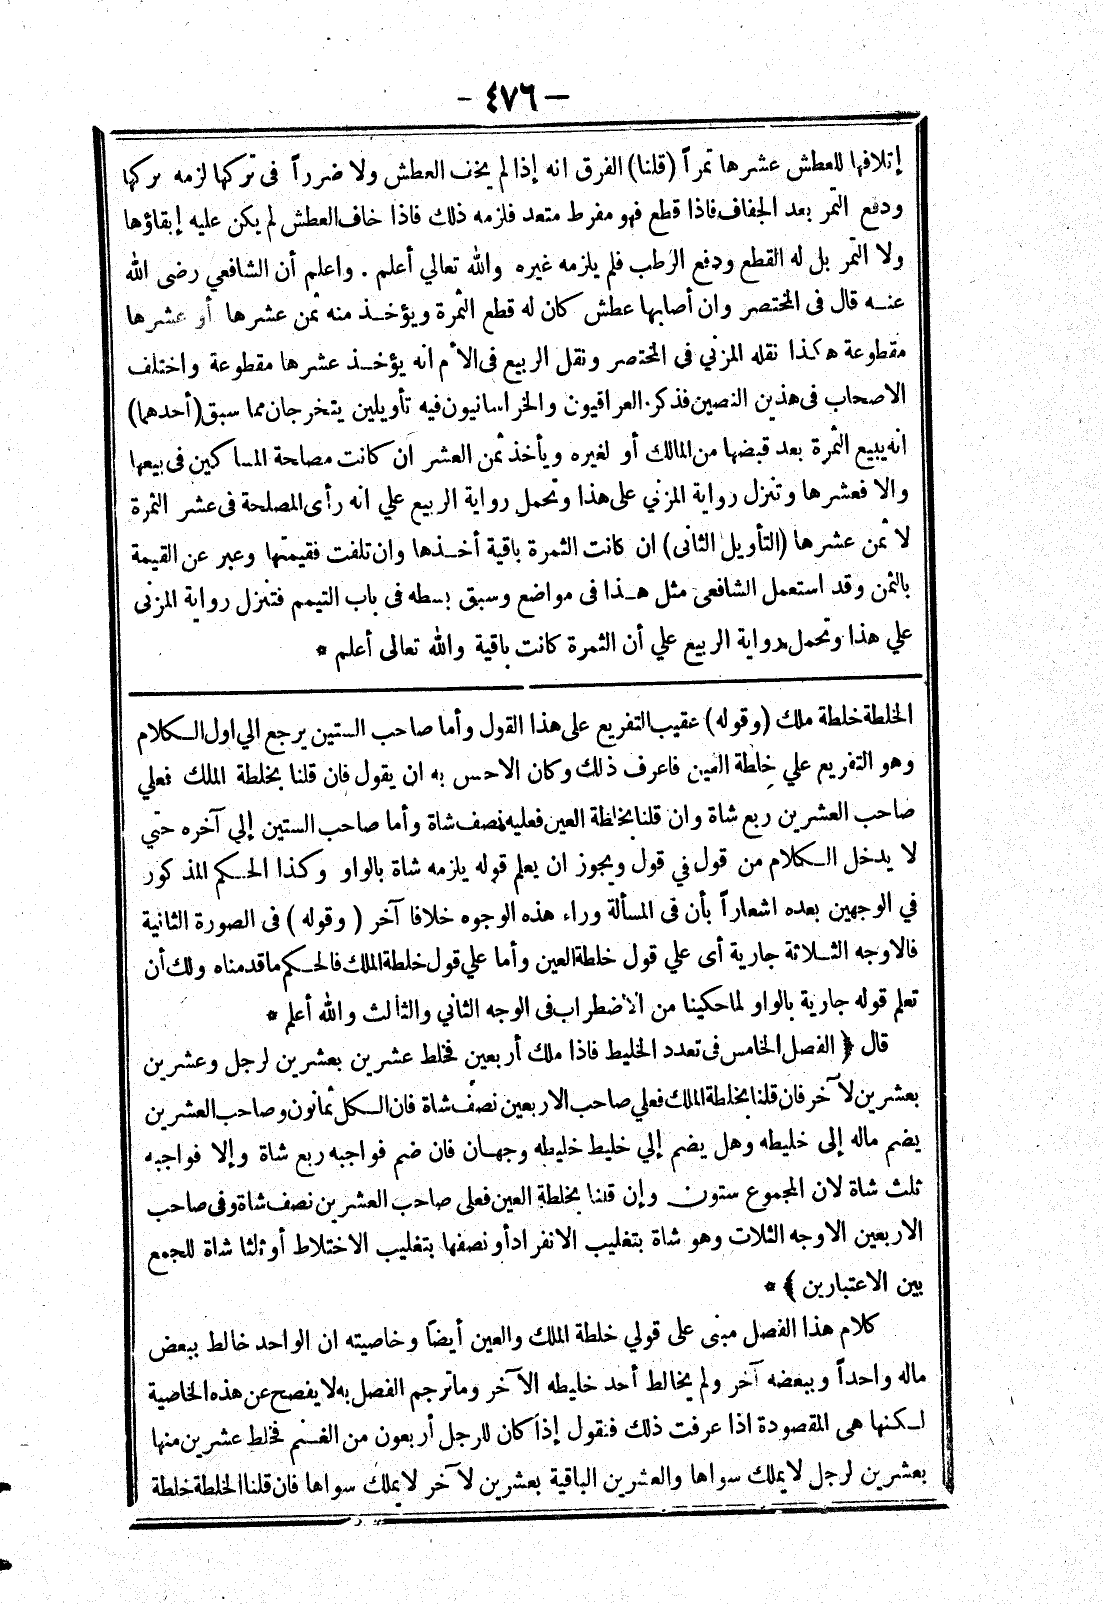 — ٤٧٦ —
إتلافها للعطش عشرها تمراً (قلنا) الفرق انه إذا لم يخف العطش ولا ضرراً فى تركها لزمه تركها
ودفع التمر بعد الجفاف فاذا قطع فهو مفرط متعد فلزمه ذلك فاذا خاف العطش لم يكن عليه إبقاؤها
ولا التمر بل له القطع ودفع الرطب فلم يلزمه غيره والله تعالي أعلم . واعلم أن الشافعي رضى الله
عنـه قال فى المختصر وان أصابها عطش كان له قطع الثمرة ويؤخـذ منه ثمن عشرها أو عشرها
مقطوعة هكذا نقله المزني فى المختصر ونقل الربيع فى الأم انه يؤخـذ عشرها مقطوعة واختلف
الاصحاب فى هذين النصين فذكر العراقيون والخراسانيون فيه تأويلين يتخرجان مما سبق (أحدهما)
انه يبيع الثمرة بعد قبضها من المالك أو لغيره ويأخذ ثمن العشر ان كانت مصلحة المساكين فى بيعها
والا فعشرها وتنزل رواية المزني على هذا وتحمل رواية الربيع علي انه رأى المصلحة فى عشر الثمرة
لا ثمن عشرها (التأويل الثانى) ان كانت الثمرة باقية أخـذها وان تلفت فقيمتها وعبر عن القيمة
بالثمن وقد استعمل الشافعى مثل هـذا فى مواضع وسبق بسطه فى باب التيمم فتنزل رواية المزنى
علي هذا وتحمل رواية الربيع علي أن الثمرة كانت باقية والله تعالى أعلم *
الخلطة خلطة ملك (وقوله) عقيب التفريع على هذا القول وأما صاحب الستين يرجع الي اول الـكلام
وهو التفريع علي خلطة العين فاعرف ذلك وكان الاحسن به ان يقول فان قلنا بخلطة الملك فعلي
صاحب العشرين ربع شاة وان قلنا بخلطة العين فعليه نصف شاة وأما صاحب الستين إلي آخره حتي
لا يدخل الـكلام من قول في قول ويجوز ان يعلم قوله يلزمه شاة بالواو وكذا الحـكم المذكور
في الوجهين بعده اشعاراً بأن فى المسألة وراء هذه الوجوه خلافا آخر (وقوله) فى الصورة الثانية
فالاوجه الثـلاثة جارية أى علي قول خلطة العين وأما علي قول خلطة الملك فالحـكم ما قدمناه ولك أن
تعلم قوله جارية بالواو لما حكينا من الاضطراب فى الوجه الثاني والثالث والله أعلم *
قال ﴿ الفصل الخامس فى تعدد الخليط فاذا ملك أربعين فخلط عشرين بعشرين لرجل وعشرين
بعشرين لآخر فان قلنا بخلطة الملك فعلي صاحب الاربعين نصف شاة فان الـكل ثمانون وصاحب العشرين
يضم ماله إلى خليطه وهل يضم إلي خليط خليطه وجهـان فان ضم فواجبه ربع شاة وإلا فواجبه
ثلث شاة لان المجموع ستون وإن قلنا بخلطة العين فعلى صاحب العشرين نصف شاة وفى صاحب
الاربعين الاوجه الثلاث وهو شاة بتغليب الانفراد أو نصفها بتغليب الاختلاط أو ثلثا شاة للجمع
بين الاعتبارين ﴾ *
كلام هذا الفصل مبنى على قولي خلطة الملك والعين أيضاً وخاصيته ان الواحد خالط ببعض
ماله واحداً وببعضه آخر ولم يخالط أحد خليطه الآخر وما ترجم الفصل به لا يفصح عن هذه الخاصية
لـكنها هى المقصودة اذا عرفت ذلك فنقول إذا كان للرجل أربعون من الغـنم فخلط عشرين منها
بعشرين لرجل لا يملك سواها والعشرين الباقية بعشرين لآخر لا يملك سواها فان قلنا الخلطة خلطة